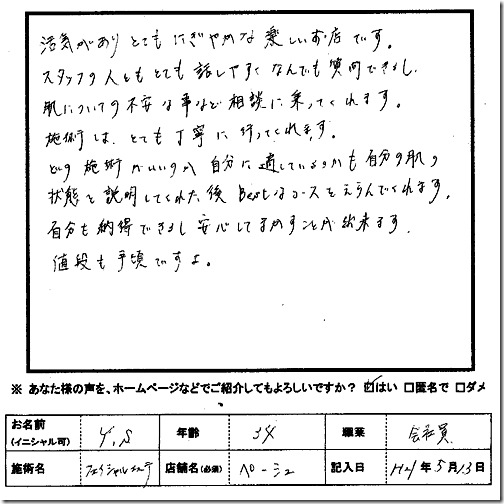 活気があり とても にぎやかな 楽しいお店です。
スタッフの人とも とても 話しやすく なんでも 質問できるし、
肌についての 不安な事など 相談に 乗ってくれます。
施術は、とても 丁寧に 行ってくれます。
どの 施術がいいのか 自分に適しているのかも 自分の肌の
状態を 説明してくれた後 Bestなコースを えらんでくれます。
自分も 納得できるし 安心して まかすことが 出来ます。
値段も 手頃ですよ。
※ あなた様の声を、ホームページなどでご紹介してもよろしいですか？ ☑はい □匿名で □ダメ
お名前 (イニシャル可) Y.S 年齢 34 職業 会社員
施術名 フェイシャルエステ 店舗名(必須) ペーシュ 記入日 H21年5月13日